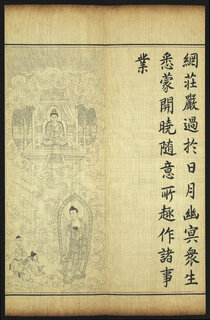 網莊嚴過於日月幽冥衆生
悉蒙開曉隨意所趣作諸事
業